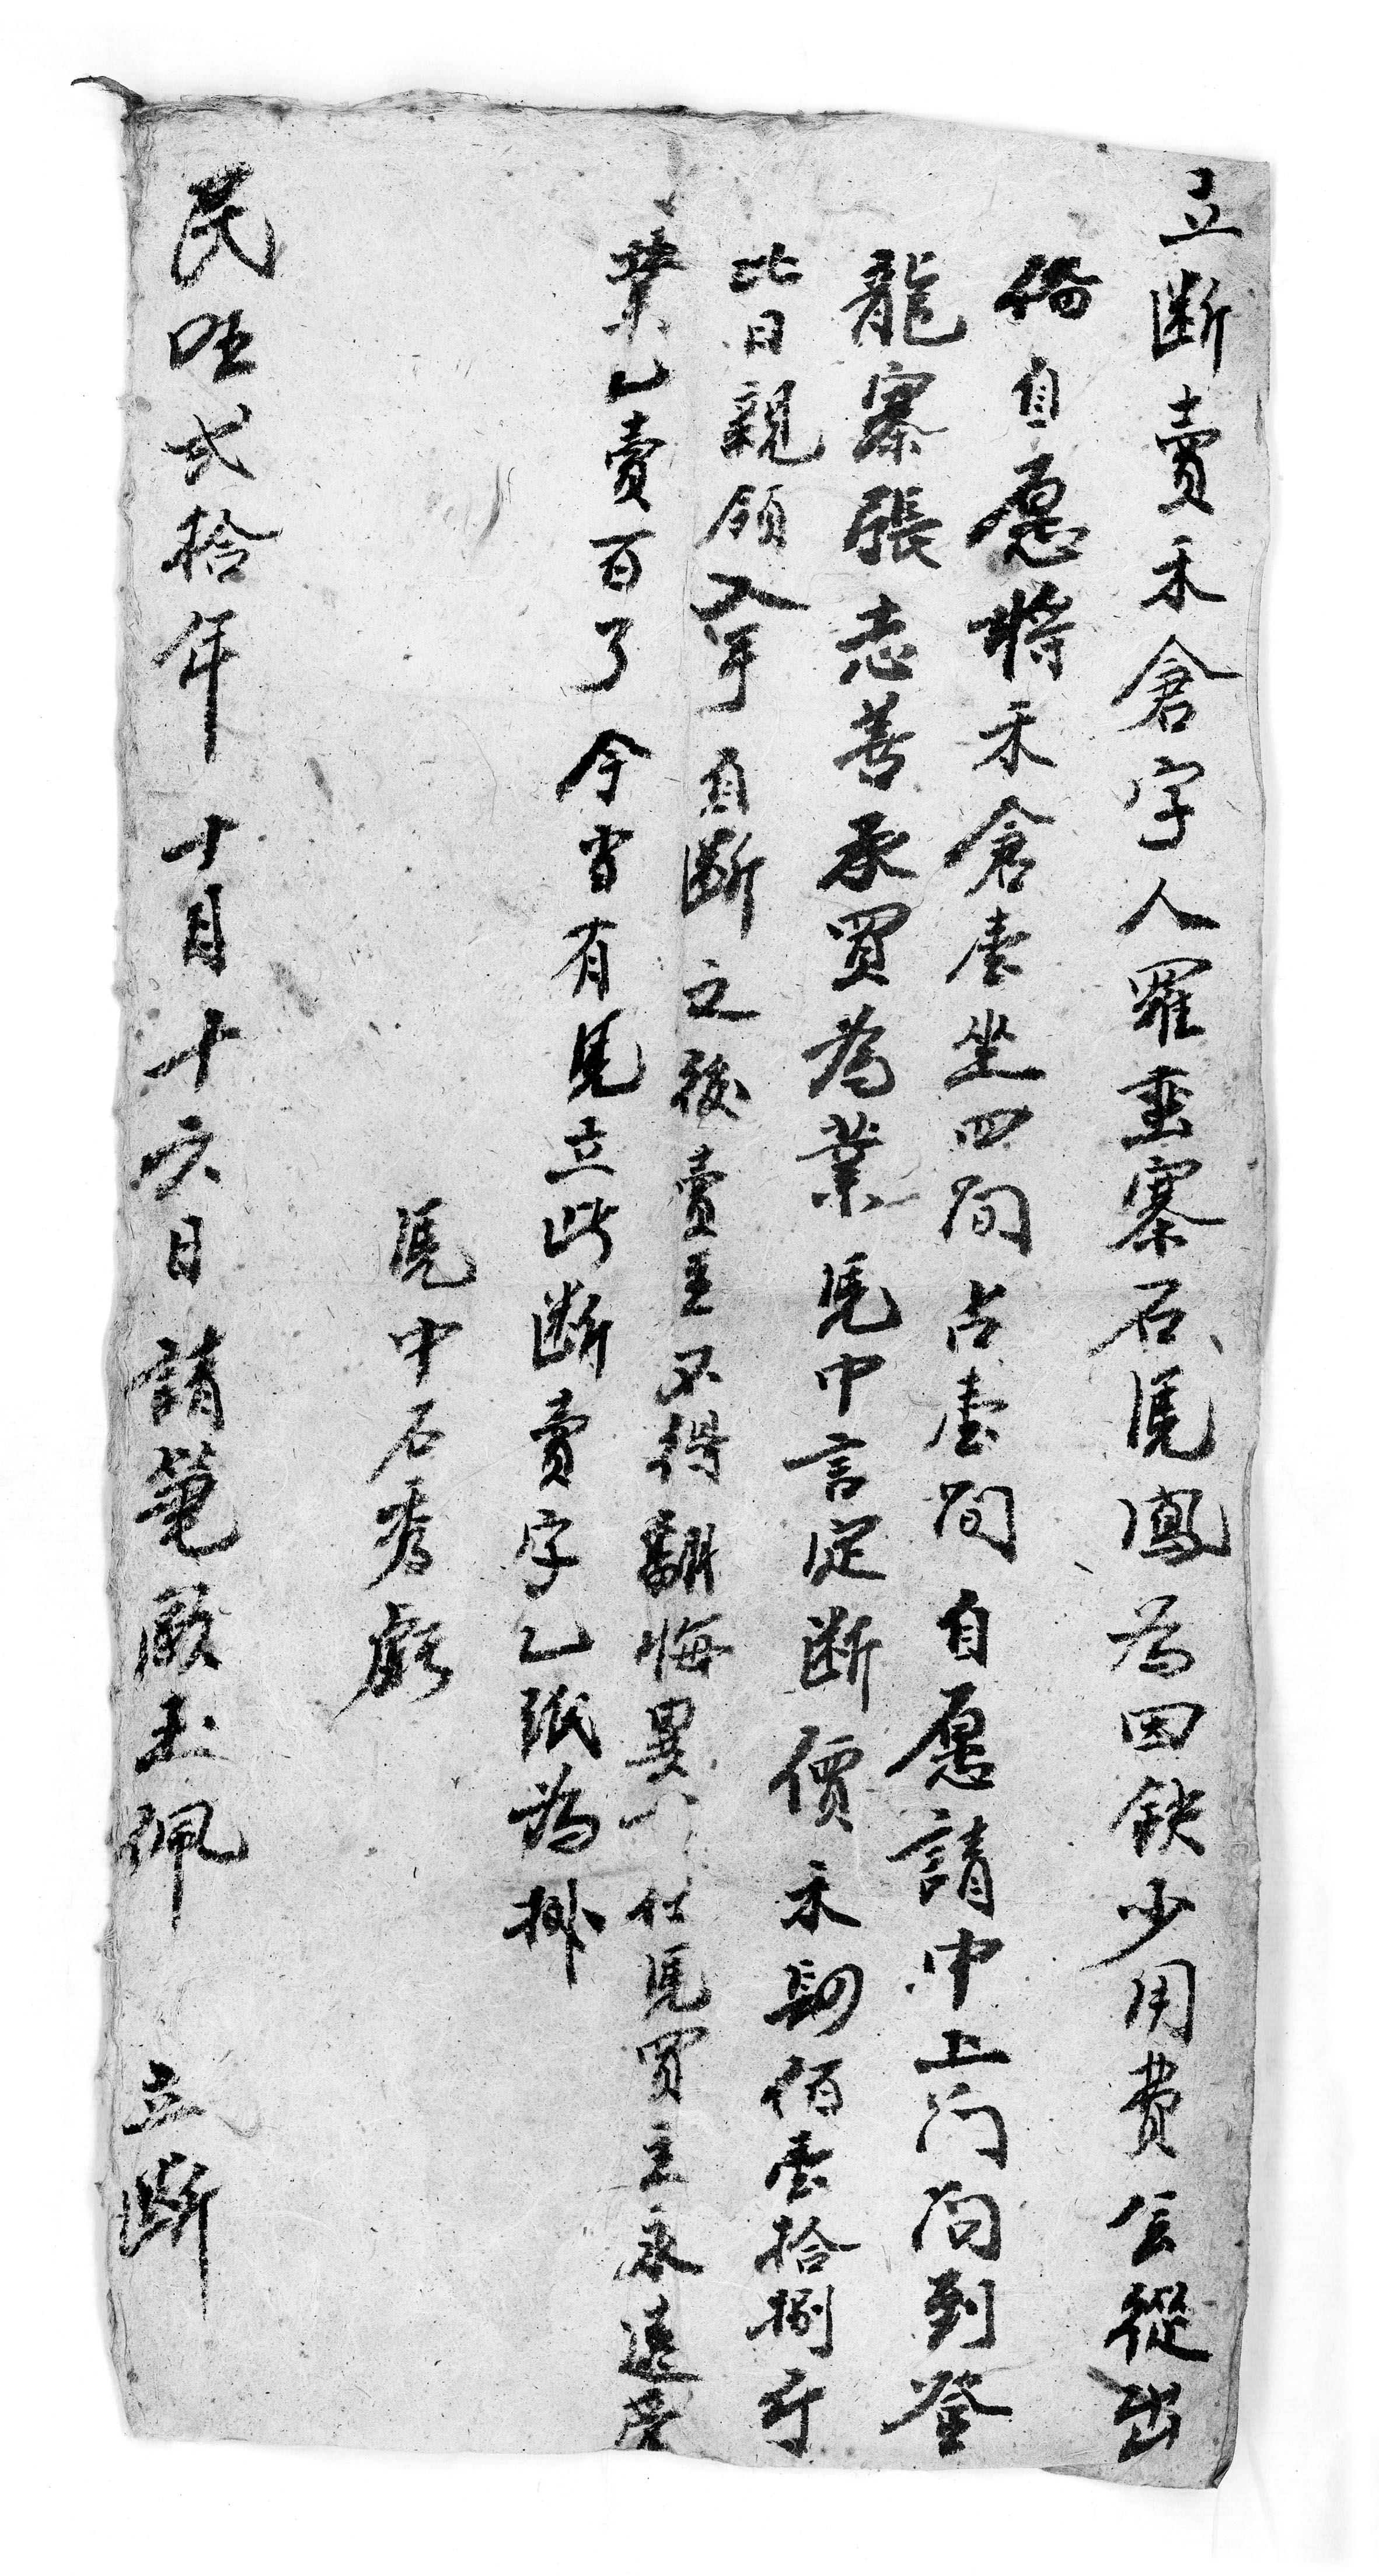 立断賣禾倉字人羅重寨石凴鳳為因缺少用費無從出
備自愿將禾倉壹坐四間占壹間自愿請中上门问到登
龍寨張志善承買為業凴中言定断價禾谷佰壹拾捌斤
比日親領入手自断之後賣主不得翻悔異言任凴買主永遠管
業乙賣百了今當有凴立此断賣字乙紙為據
凴中石秀
民国弍拾年十月十六日請筆歐玉佩 立断